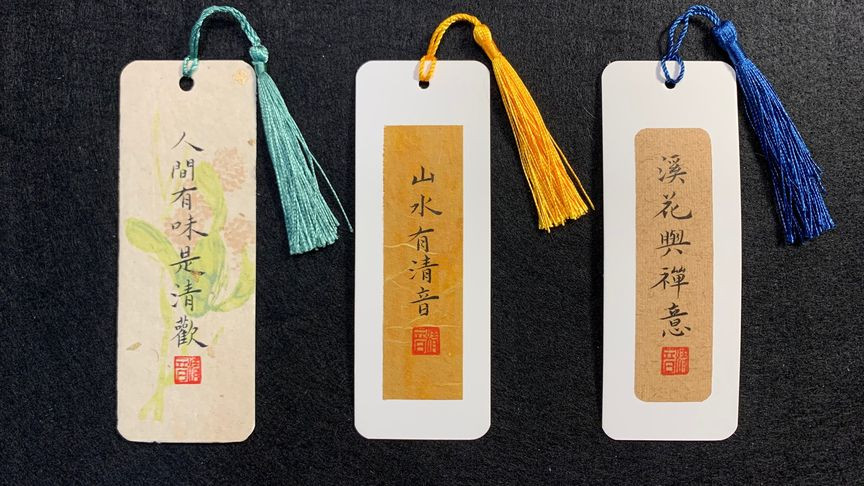 人間有味是清歡
山水有清音
溪花與禪意